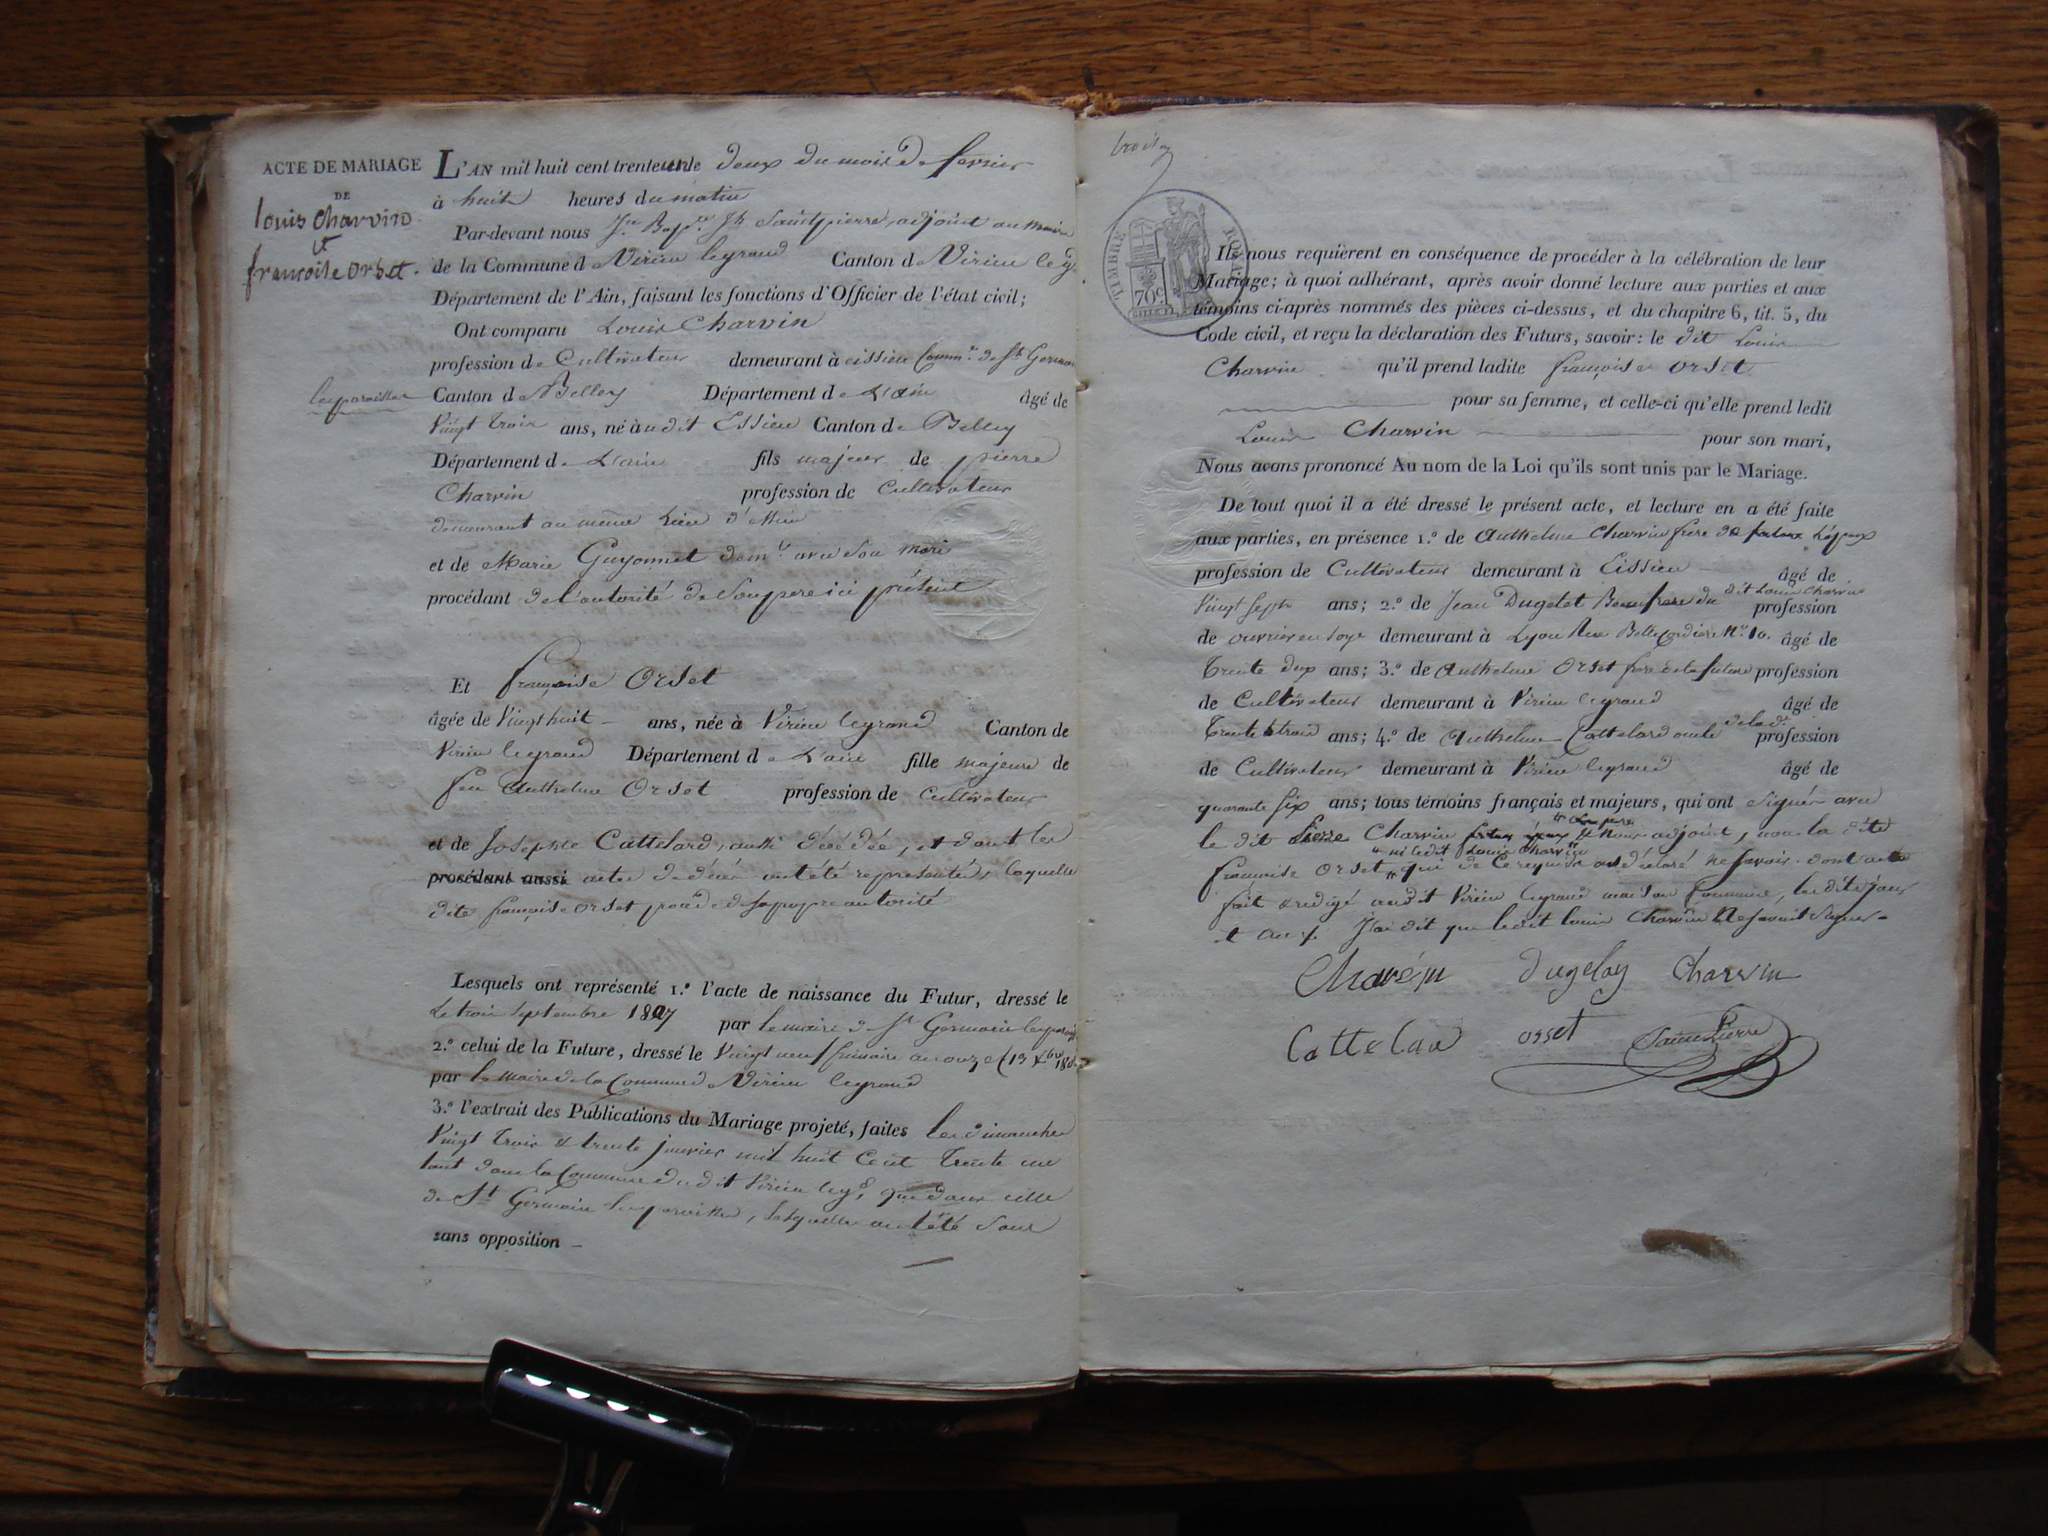 ACTE DE MARIAGE
DE
louis Charvin
et
francoise orset.
lesparoisses
L'AN mil huit cent trente un le deux du mois de fevrier
à huit heures du matin
Par-devant nous Jn Bapte Jh Saintpierre, adjoint au maire
de la Commune d Virieu legrand Canton d Virieu leg
Département de l'Ain, faisant les fonctions d'Officier de l'état civil;
Ont comparu Louis Charvin
profession de Cultivateur demeurant à eissieu Commne de St Germain
Canton de Belley Département de L'ain âgé de
Vingt Trois ans, né au dit Essieu Canton de Belley
Département de L'ain fils majeur de pierre
Charvin profession de Cultivateur
demeurant au même Lieu d'
et de Marie Guyonnet demt avec Son mari
procédant de l'autorité de Son pere ici présent
Et françoise Orset
âgée de Vingt huit ans, née à Virieu legrand Canton de
Virieu legrand Département de L'ain fille majeure de
feu Anthelme Orset profession de Cultivateur
et de Josephte Cattelard, aussi décédée, et dont les
procédant aussi actes de décès ont été représentés, laquelle
dite françoise orset procède de sa propre autorité
Lesquels ont représenté 1.º l'acte de naissance du Futur, dressé le
Le trois Septembre 1807 par le maire de St Germain lesparoiss
2.º celui de la Future, dressé le Vingt neuf frimaire an onze (19 Xbre 180
par le maire de la Commune de Virieu legrand
3.º l'extrait des Publications du Mariage projeté, faites les dimanches
Vingt Trois & trente janvier mil huit Cent Trente un
tant dans la Commune du dit Virieu legd, que dans celle
de St Germain lesparoisses, lesquelles ont été Sans
sans opposition
TIMBRE ROYAL
70c
Ils nous requièrent en conséquence de procéder à la célébration de leur
Mariage; à quoi adhérant, après avoir donné lecture aux parties et aux
témoins ci-après nommés des pièces ci-dessus, et du chapitre 6, tit. 5, du
Code civil, et reçu la déclaration des Futurs, savoir: le dit Louis
Charvin qu'il prend ladite françoise orset
pour sa femme, et celle-ci qu'elle prend ledit
Louis Charvin pour son mari,
Nous avons prononcé Au nom de la Loi qu'ils sont unis par le Mariage.
De tout quoi il a été dressé le présent acte, et lecture en a été faite
aux parties, en présence 1.º de Anthelme Charvin frere de L'époux
profession de Cultivateur demeurant à Eissieu âgé de
Vingt Sept ans; 2.º de Jean Dugelet Beaufrere du dit Louis Charvin profession
de ouvrier en Soye demeurant à Lyon Rue Bellecordière No 10. âgé de
Trente deux ans; 3.º de Anthelme Orset frere de la future profession
de Cultivateur demeurant à Virieu legrand âgé de
Trente trois ans; 4.º de Anthelme Cattelard oncle de la dte profession
de Cultivateur demeurant à Virieu legrand âgé de
quarante Six ans; tous témoins français et majeurs, qui ont Signés avec
le dit Pierre Charvin futur époux & Nous adjoint, non la dite
ni ledit Louis Charvin
françoise Orset, qui de Ce requis ont déclaré ne Savoir dont acte
fait & redigé au dit Virieu legrand maison Commune, les dits jour
et an. J'ai dit que ledit louis Charvin Ne Savait Signer
Charvin Dugelay Charvin
Cattelar orset SaintPierre